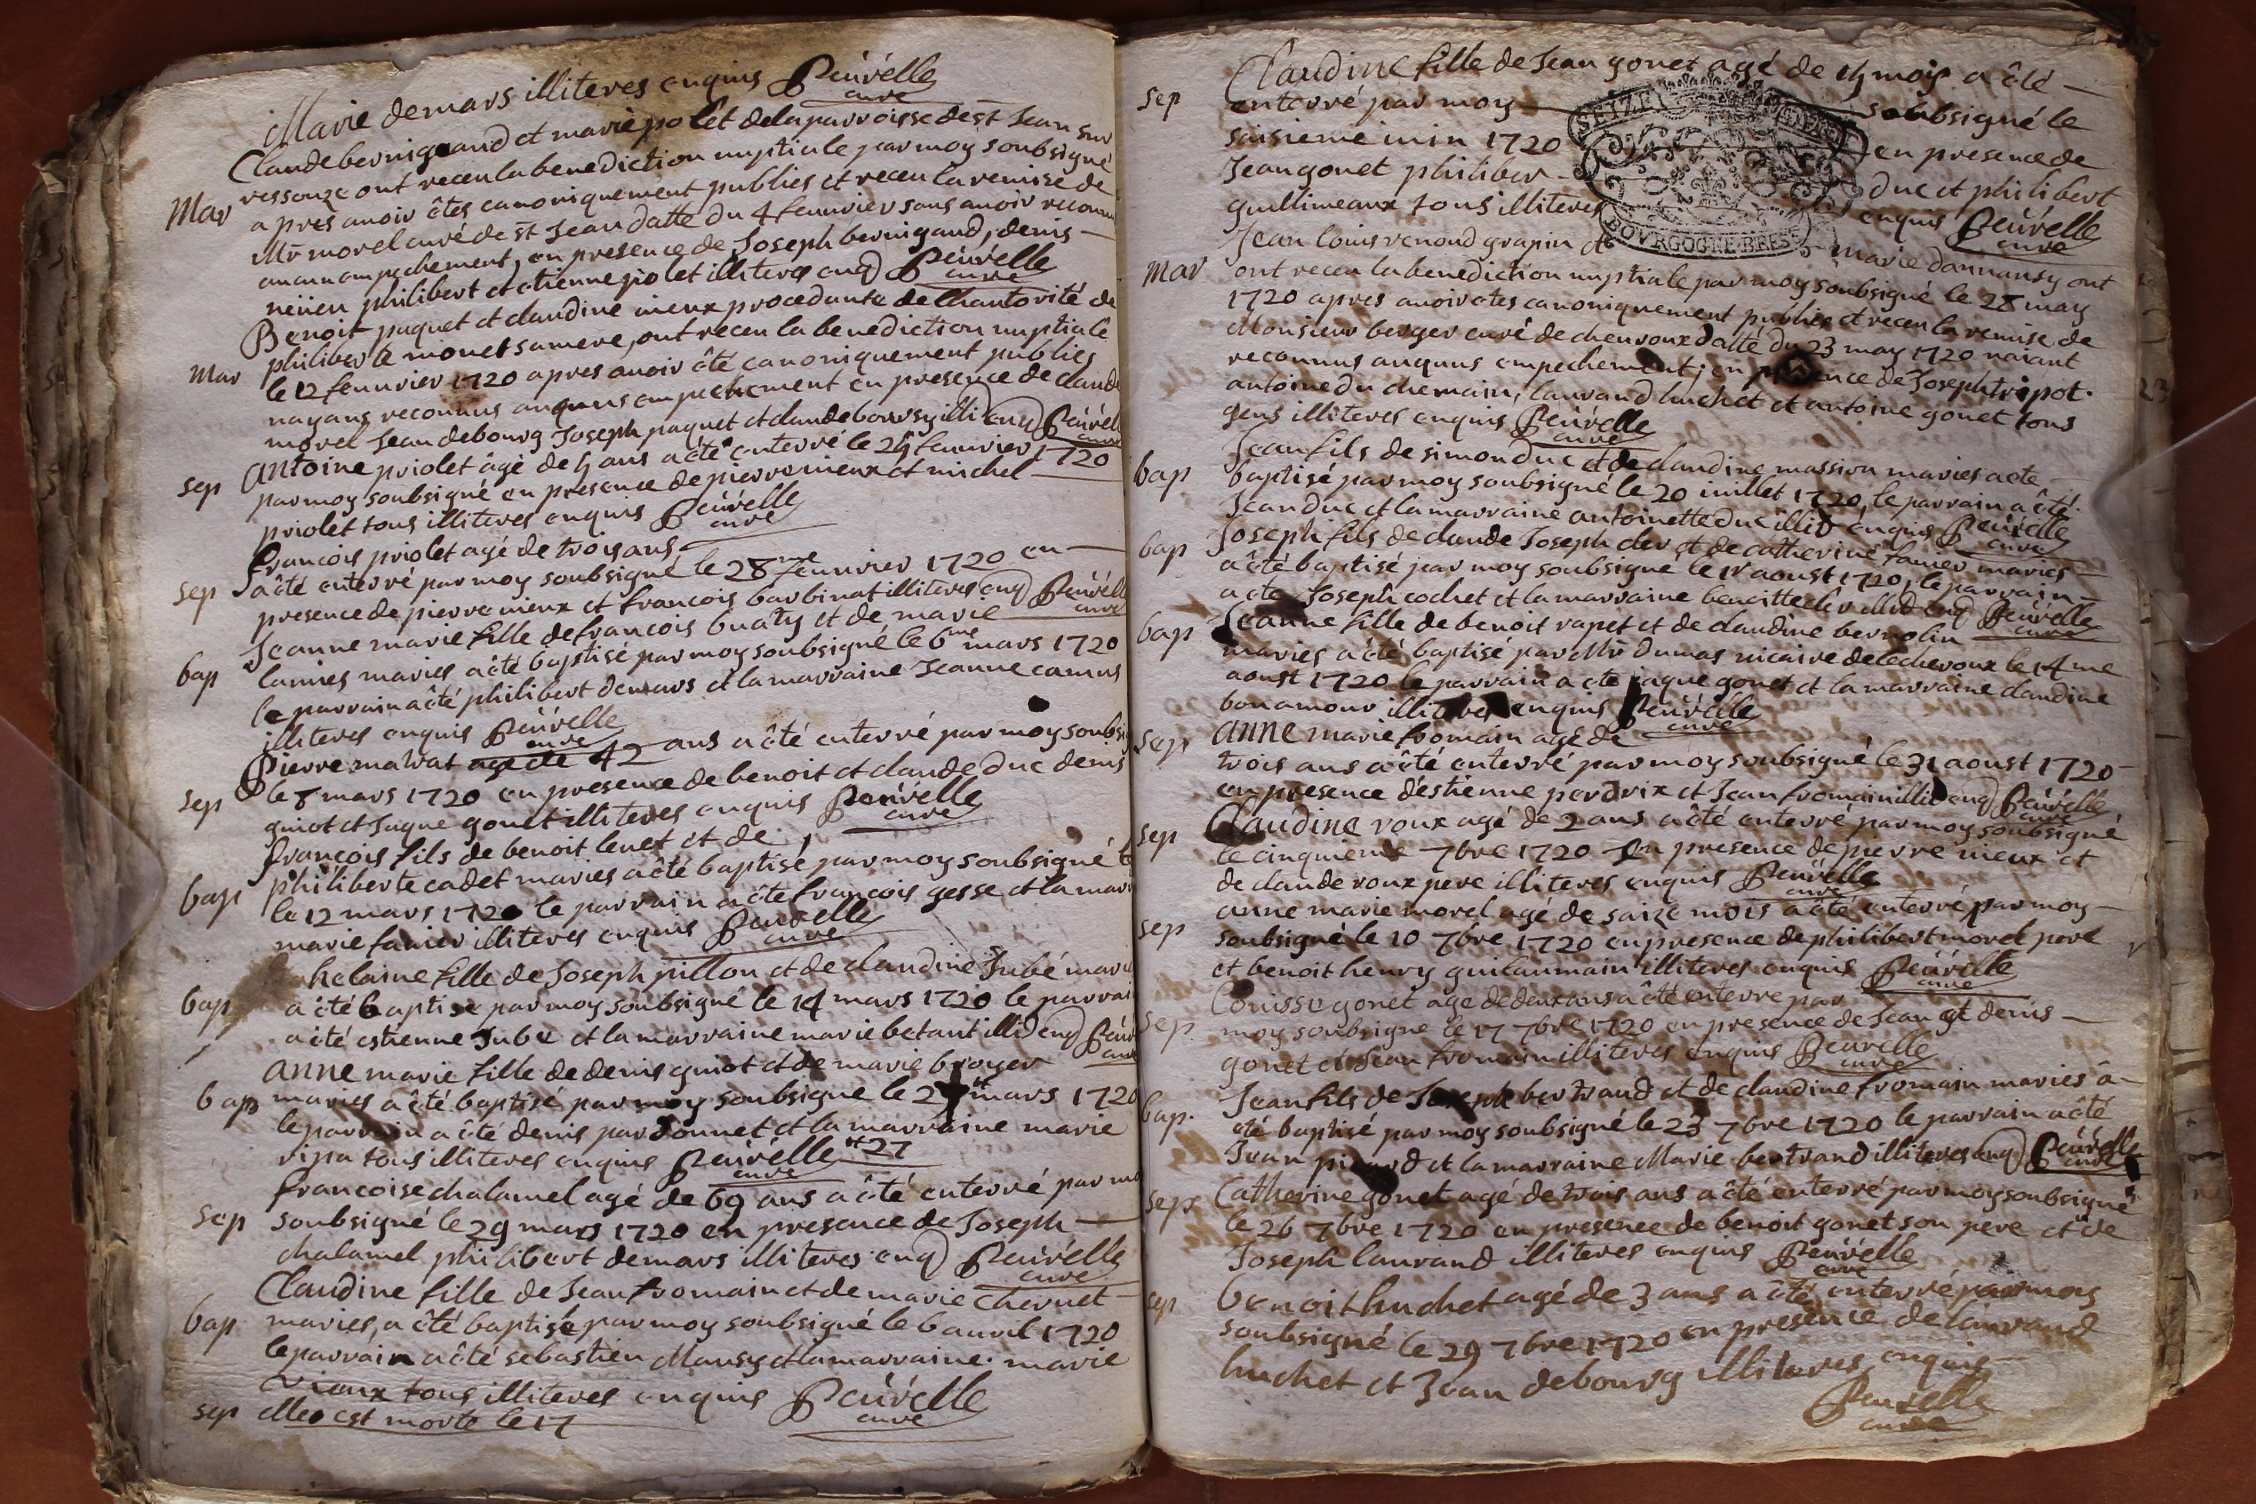 Marie demars illiteres enquis Peuvelle
curé
Claude bernigaud et marie polet dela parroisse de st Jean sur
Mar ressouze ont receu la benediction nuptiale par moy soubsigné
apres avoir êtes canoniquement publies et receu la remise de
Mr morel curé de st Jean datte du 4 feuvrier sans avoir reconnu
aucun empechement, en presence de Joseph bernigaud, denis
neiien philibert et etienne polet illiteres enq Peuvelle
curé
Benoit paquet et claudine nieux procedante de lhautorité de
philiberte monet sa mere, ont receu la benediction nuptiale
mar le 12 feuvrier 1720 apres avoir été canoniquement publies
nayans reconnus auquns empechement en presence de claude
morel Jean debourg Joseph paquet et claude boursy illi enq Peuvelle
curé
sep antoine priolet âgé de 5 ans a été enterré le 24 feuvrier 1720
par moy soubsigné en presence de pierre nieux et michel
priolet tous illiteres enquis Peuvelle
curé
françois priolet agé de trois ans
sep a été enterré par moy soubsigné le 28me feuvrier 1720 en
presence de pierre nieux et francois barbinat illiteres enq Peuvelle
curé
Jeanne marie fille de francois buaty et de marie
bap lanies maries a été baptisé par moy soubsigné le 6me mars 1720
le parrain a été philibert demars et la marraine Jeanne camus
illiteres enquis Peuvelle
curé
Pierre malvat agé de 42 ans a été enterré par moy soubsi
sep le 8 mars 1720 en presence de benoit et claude duc denis
guiot et Jaque gonet illiteres enquis Peuvelle
curé
françois fils de benoit lenet et de
philiberte cadet maries a été baptisé par moy soubsigné
bap le 12 mars 1720 le parrain a été françois gesse et la marr
marie fanier illiteres enquis Peuvelle
curé
helaine fille de Joseph pillon et de claudine Jubé marie
bap a été baptisé par moy soubsigné le 14 mars 1720 le parrai
a été estienne Jube et la marraine marie betant illi enq Peuv
curé
anne marie fille de denis guiot et de marie broyer
bap maries a été baptisé par moy soubsigné le mars 1720
le parrain a été denis pardonnet et la marraine marie
ripa tous illiteres enquis Peuvelle 27
curé
francoise chalamel agé de 69 ans a été enterré par mo
sep soubsigné le 29 mars 1720 en presence de Joseph
chalamel philibert demars illiteres enq Peuvelle
curé
Claudine fille de Jean fromain et de marie chernet
bap maries, a été baptisée par moy soubsigné le 6 avril 1720
le parrain a été sebastien Mansy et la marraine marie
vieux tous illiteres enquis Peuvelle
curé
sep elle est morte le 17
Claudine fille de Jean gonet agé de 15 mois a été
sep enterré par moy soubsigné le
saisieme iuin 1720 en presence de
Jean gonet philiber duc et philibert
guillimeaux tous illiteres enquis Peuvelle
curé
SEIZE
BOVRGOGNE BRESSE
Jean louis renoud grapin et marie dannansy ont
mar ont receu la benediction nuptiale par moy soubsigné le 28 may
1720 apres avoir etes canoniquement publies et receu la remise de
Monsieur berger curé de chevroux datté du 23 may 1720 naiant
reconnus auquns empechement; en presence de Joseph tripot
antoine du chemain, laurand huchet et antoine gonet tous
gens illiteres enquis Peuvelle
curé
Jean fils de simon duc et de claudine massion maries a ete
bap baptisé par moy soubsigné le 20 iuillet 1720, le parrain a été
Jean duc et la marraine antoinette duc illi enquis Peuvelle
curé
bap Joseph fils de claude Joseph cler et de catherine fanier maries
a été baptisé par moy soubsigné le 1r aoust 1720, le parrain
a ete Joseph cochet et la marraine benoitte cler illi enq Peuvelle
curé
bap Jeanne fille de benoit rapet et de claudine bernolin
maries a été baptisé par Mr Dumas vicaire de lecheroux le 14me
aoust 1720 le parrain a ete iaque gonet et la marraine claudine
bonamour illiteres enquis Peuvelle
curé
sep anne marie fromain agé de
trois ans a été enterré par moy soubsigné le 31 aoust 1720
en presence d'éstienne perdrix et Jean fromain illi enq Peuvelle
curé
sep Claudine roux agé de 2 ans a été enterré par moy soubsigné
le cinquieme 7bre 1720 en presence de pierre nieux et
de claude roux pere illiteres enquis Peuvelle
curé
anne marie morel agé de saize mois a été enterré par moy
sep soubsigné le 10 7bre 1720 en presence de philibert morel pere
et benoit henry guilaumain illiteres enquis Peuvelle
curé
Louisse gonet agé de deux ans a été enterré par
sep moy soubsigné le 17 7bre 1720 en presence de Jean et denis
gonet et Jean fromain illiteres enquis Peuvelle
curé
Jean fils de Joseph bertrand et de claudine fromain maries a
bap. été baptisé par moy soubsigné le 23 7bre 1720 le parrain a été
Jean picard et la marraine Marie bertrand illiteres enq Peuvelle
curé
sep Catherine gonet agé de trois ans a été enterré par moy soubsigné
le 26 7bre 1720 en presence de benoit gonet son pere et de
Joseph laurand illiteres enquis Peuvelle
curé
sep benoit huchet agé de 3 ans a été enterré par moy
soubsigné le 29 7bre 1720 en presence de laurand
huchet et Jean debourg illiteres enquis
Peuvelle
curé